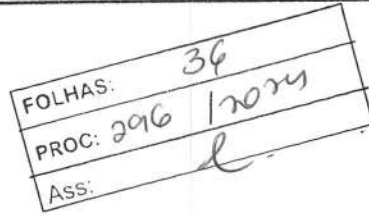 FOLHAS: 36
PROC: 296 / 2024
Ass: